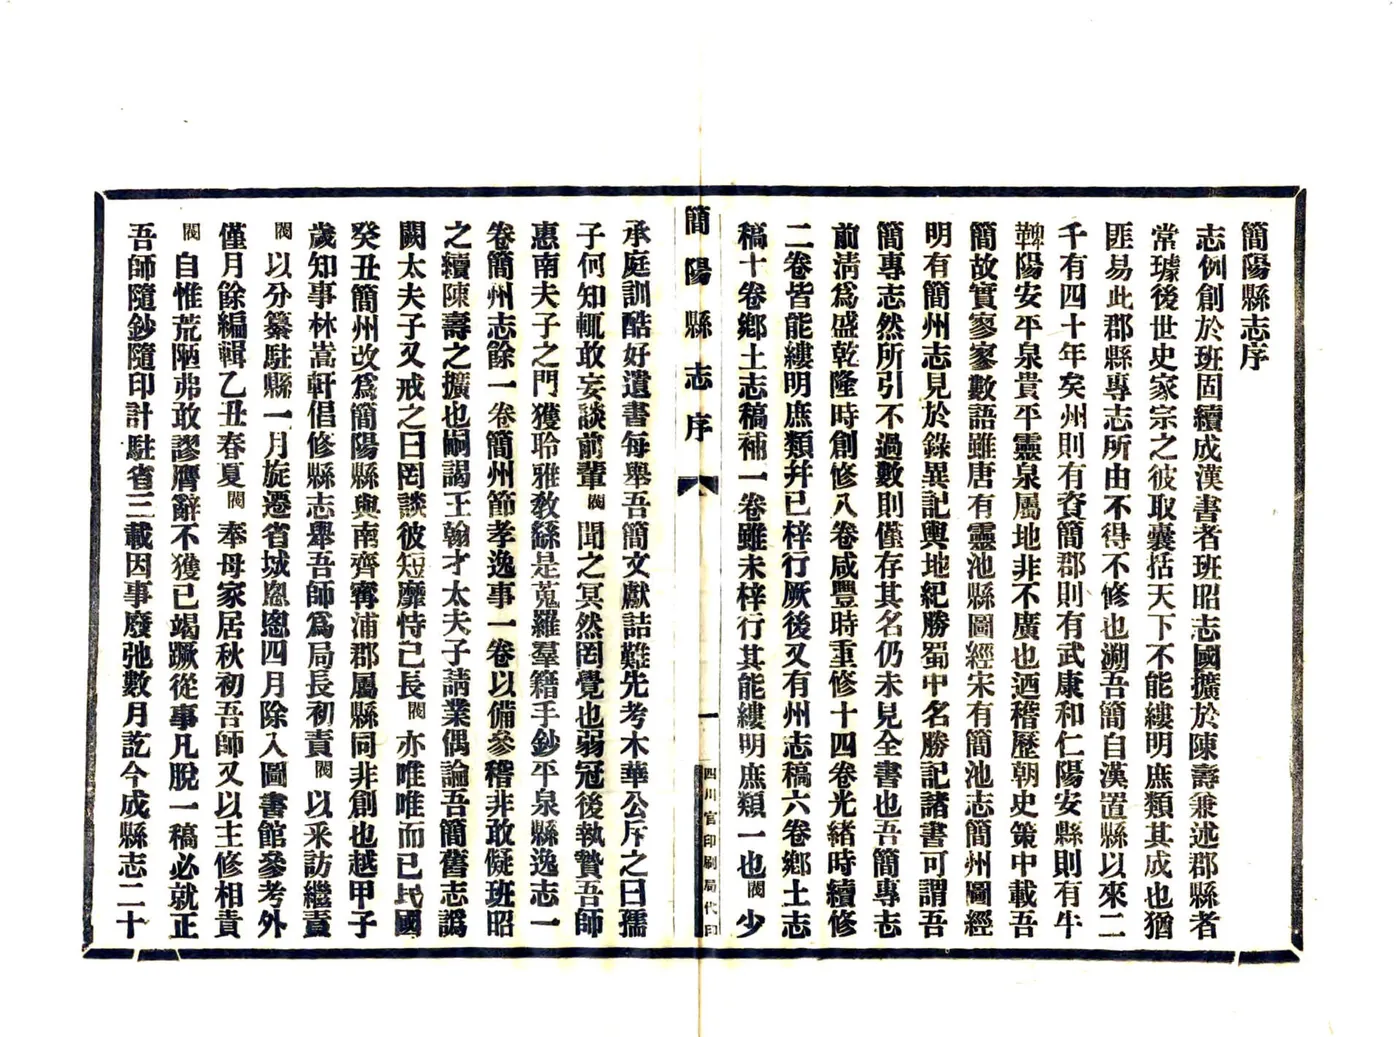 簡陽縣志序
志例創於班固續成漢書者班昭志國擴於陳壽兼述郡縣者
常璩後世史家宗之彼取囊括天下不能縷明庶類其成也猶
匪易此郡縣專志所由不得不修也溯吾簡自漢置縣以來二
千有四十年矣州則有資簡郡則有武康和仁陽安縣則有牛
鞞陽安平泉貴平靈泉屬地非不廣也迺稽歷朝史策中載吾
簡故實寥寥數語雖唐有靈池縣圖經宋有簡池志簡州圖經
明有簡州志見於錄異記輿地紀勝蜀中名勝記諸書可謂吾
簡專志然所引不過數則僅存其名仍未見全書也吾簡專志
前淸爲盛乾隆時創修八卷咸豐時重修十四卷光緖時續修
二卷皆能縷明庶類幷已梓行厥後又有州志稿六卷鄕土志
稿十卷鄕土志稿補一卷雖未梓行其能縷明庶類一也閺少
簡陽縣志序
一
四川官印刷局代印
承庭訓酷好遺書每舉吾簡文獻詰難先考木華公斥之曰孺
子何知輒敢妄談前輩閺聞之冥然罔覺也弱冠後執贄吾師
惠南夫子之門獲聆雅敎繇是蒐羅羣籍手鈔平泉縣逸志一
卷簡州志餘一卷簡州節孝逸事一卷以備參稽非敢儗班昭
之續陳壽之擴也嗣謁王翰才太夫子請業偶論吾簡舊志譌
闕太夫子又戒之曰罔談彼短靡恃己長閺亦唯唯而已民國
癸丑簡州改爲簡陽縣與南齊寗浦郡屬縣同非創也越甲子
歲知事林嵩軒倡修縣志舉吾師爲局長初責閺以采訪繼責
閺以分纂駐縣一月旋遷省城悤悤四月除入圖書館參考外
僅月餘編輯乙丑春夏閺奉母家居秋初吾師又以主修相責
閺自惟荒陋弗敢謬膺辭不獲已竭蹶從事凡脫一稿必就正
吾師隨鈔隨印計駐省三載因事廢弛數月訖今成縣志二十